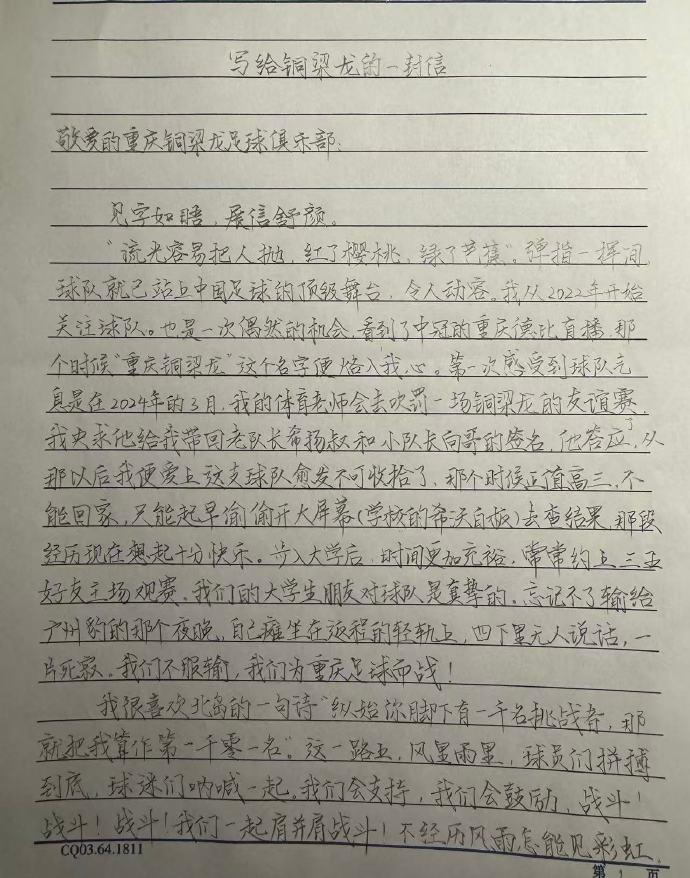 写给铜梁龙的一封信
敬爱的重庆铜梁龙足球俱乐部：
见字如晤，展信舒颜。
"流光容易把人抛，红了樱桃，绿了芭蕉"。弹指一挥间，
球队就已站上中国足球的顶级舞台，令人动容。我从2022年开始
关注球队。也是一次偶然的机会，看到了中冠的重庆德比直播，那
个时候"重庆铜梁龙"这个名字便烙入我心。第一次感受到球队气
息是在2024年的3月，我的体育老师会去吹罚一场铜梁龙的友谊赛，
我央求他给我带回老队长希扬叔和小队长向哥的签名，他答应了，从
那以后我便爱上这支球队愈发不可收拾了，那个时候正值高三，不
能回家，只能起早偷偷开大屏幕(学校的希沃白板)去查结果，那段
经历现在想起十分快乐。步入大学后，时间更加充裕，常常约上三五
好友主场观赛，我们的大学生朋友对球队是真挚的。忘记不了输给
广州豹的那个夜晚，自己瘫坐在返程的轻轨上，四下里无人说话，一
片死寂。我们不服输，我们为重庆足球而战！
我很喜欢北岛的一句诗"纵始你脚下有一千名挑战者，那
就把我算作第一千零一名"。这一路上，风里雨里，球员们拼搏
到底，球迷们呐喊一起。我们会支持，我们会鼓励，战斗！
战斗！战斗！我们一起肩并肩战斗！不经历风雨怎能见彩虹，
CQ03.64.1811
第 1 页